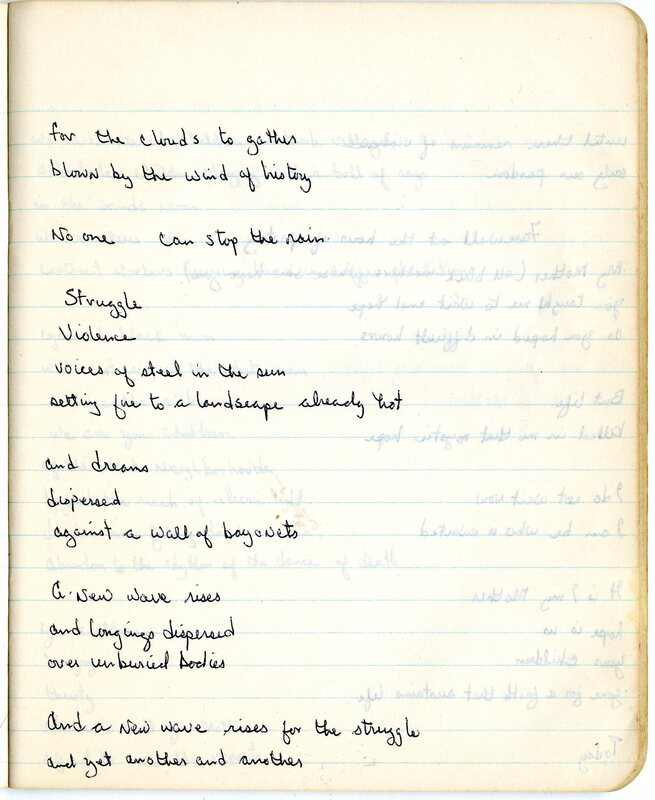 for the clouds to gather
blown by the wind of history
No one can stop the rain.
Struggle
Violence
voices of steel in the sun
setting fire to a landscape already hot
and dreams
dispersed
against a wall of bayonets
A new wave rises
and longings dispersed
over unburied bodies
And a new wave rises for the struggle
and yet another and another